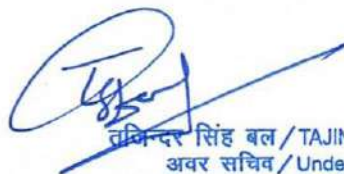 तजिन्दर सिंह बल / TAJIN
अवर सचिव / Unde